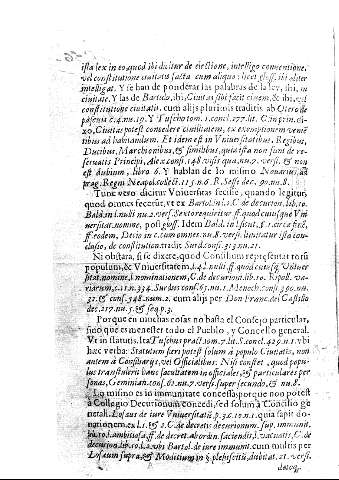 ista lex in eo quod ibi dicitur de electione, intelligo conuentione,
vel constitutione ciuitatis facta cum aliquo: licet gloss. ibi aliter
intelligat. Y se han de ponderar las palabras de la ley, ibi, in
ciuitate. Y las de Bartulo, ibi, Ciuitas sibi facit ciuem, & ibi, vel
constitutione ciuitatis, cum alijs pluribus traditis ab Otero de
pascuis c. 4. nu. 19. Y Tuschotom. 1. concl. 277. lit. C. in prin. ei-
20, Ciuitas potest concedere ciuilitatem, ex exemptionem
tibus ad habitandum. Et idem est in Vniuersitatibus, Regibus,
Ducibus, Marchionibus, & similibus, quia ista non sunt de re-
seruatis Principi, Alex. cons. 148. visis qua. nu. 7. vers. & non
est dubium, libro 6. Y hablan de lo mismo Nouarius, ad
prag. Regni Neapol. collect. 115. n. 6. R. Seff. dec. 90. nu. 8.
Tunc vero dicitur Vniuersitas fecisse, quando legitur,
quod omnes fecerūt, vt ex Bartol. in l. 2. C. de decurion. lib. 10.
Bald. in l. nulli nu. 2. vers. Sexto requiritur ff. quod cuiusque Vni-
uersitat. nomine, post gloss. Idem Bald. in l. sicut, § 1. circa finē,
ff. eodem, Decio in c. cum omnes nu. 8. vers. limitatur ista con-
clusio, de constitution. tradit Surd. cons. 313. nu. 21.
Ni obstara, si se dixere, quod Consilium repræsentat totū
populum, & Vniuersitatem, l. 4. l. nulli, ff. quod cuiusq; Vniuer-
sitat. nomine, l. nominationem, C. de decurion. lib. 10.
cum alijs per Don Franc. del Castillo
dec. 217. nu. 5. & seq. p. 3.
Porque en muchas cosas no basta el Consejo particular,
sino que es menester todo el Pueblo, y Concello general.
Vt in statutis. Ita Tuschus pract. tom. 7. lit. S. concl. 429. n. 1. vbi
hæc verba: Statutum fieri potest solum à populo Ciuitatis, non
autem à Consiliarijs, vel Officialibus. Nisi constet, quod popu-
lus transtulerit suas facultatem in officiales, & particulares per
sonas, Geminian. cons. 61. nu. 7. vers. super secundo, & nu. 8.
Lo mismo es in immunitate concessa: porque non potest
à Collegio Decurionum concedi, sed solum à Concilio ge-
nerali. Losæus de iure Vniuersitatū p. 3. c. 10. n. 1. quia sapit do-
nationem ex l. 1. & 2. C. de decretis decurionum sup. immunit.
lib. 10. l. ambitiosa ff. de decret. ab ordin. faciendis, l. vacuatis, C. de
decurion. lib. 10. & vbi Bartol. de iure immunit. cum multis per
Losæum supra, & Moditium in § plebiscitū, dubitat. 21. versi.